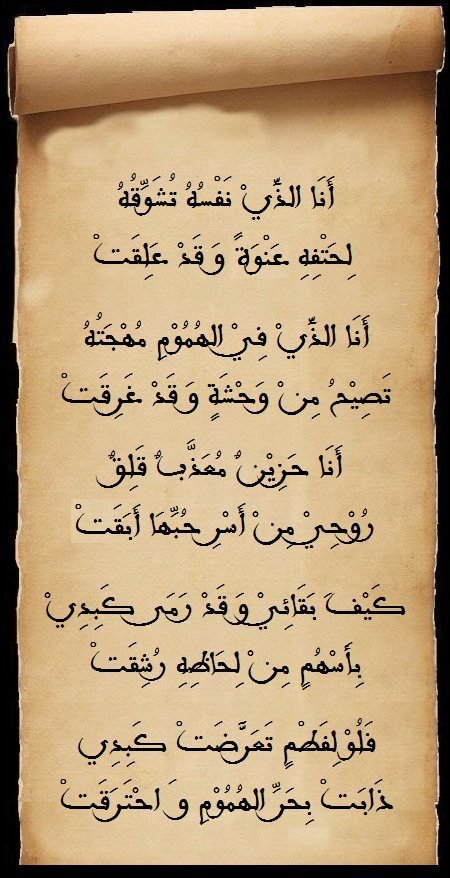 أَنَا الذِّيْ نَفْسُهُ تُشَوِّقُهُ
لِحَتْفِهِ عَنْوَةً وَ قَدْ عَلِقَتْ
أَنَا الذِّيْ فِيْ الهُمُوْمِ مُهْجَتُهُ
تَصِيْحُ مِنْ وَحْشَةٍ وَ قَدْ غَرِقَتْ
أَنَا حَزِيْنٌ مُعَذَّبٌ قَلِقٌ
رُوْحِيْ مِنْ أَسْرِ حُبِّهَا أَبَقَتْ
كَيْفَ بَقَائِيْ وَ قَدْ رَمَى كَبِدِيْ
بِأَسْهُمٍ مِنْ لِحَاظِهِ رُشِقَتْ
فَلُوْ لِفَطْمٍ تَعَرَّضَتْ كَبِدِي
ذَابَتْ بِحَرِّ الهُمُوْمِ وَ احْتَرَقَتْ